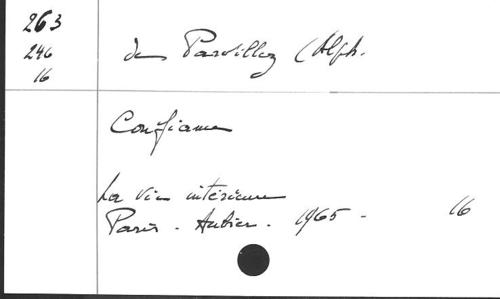 263
246
16
de Parvillez (Alph.
Confiance
La vie intérieure
Paris - Aubier - 1965 -
16